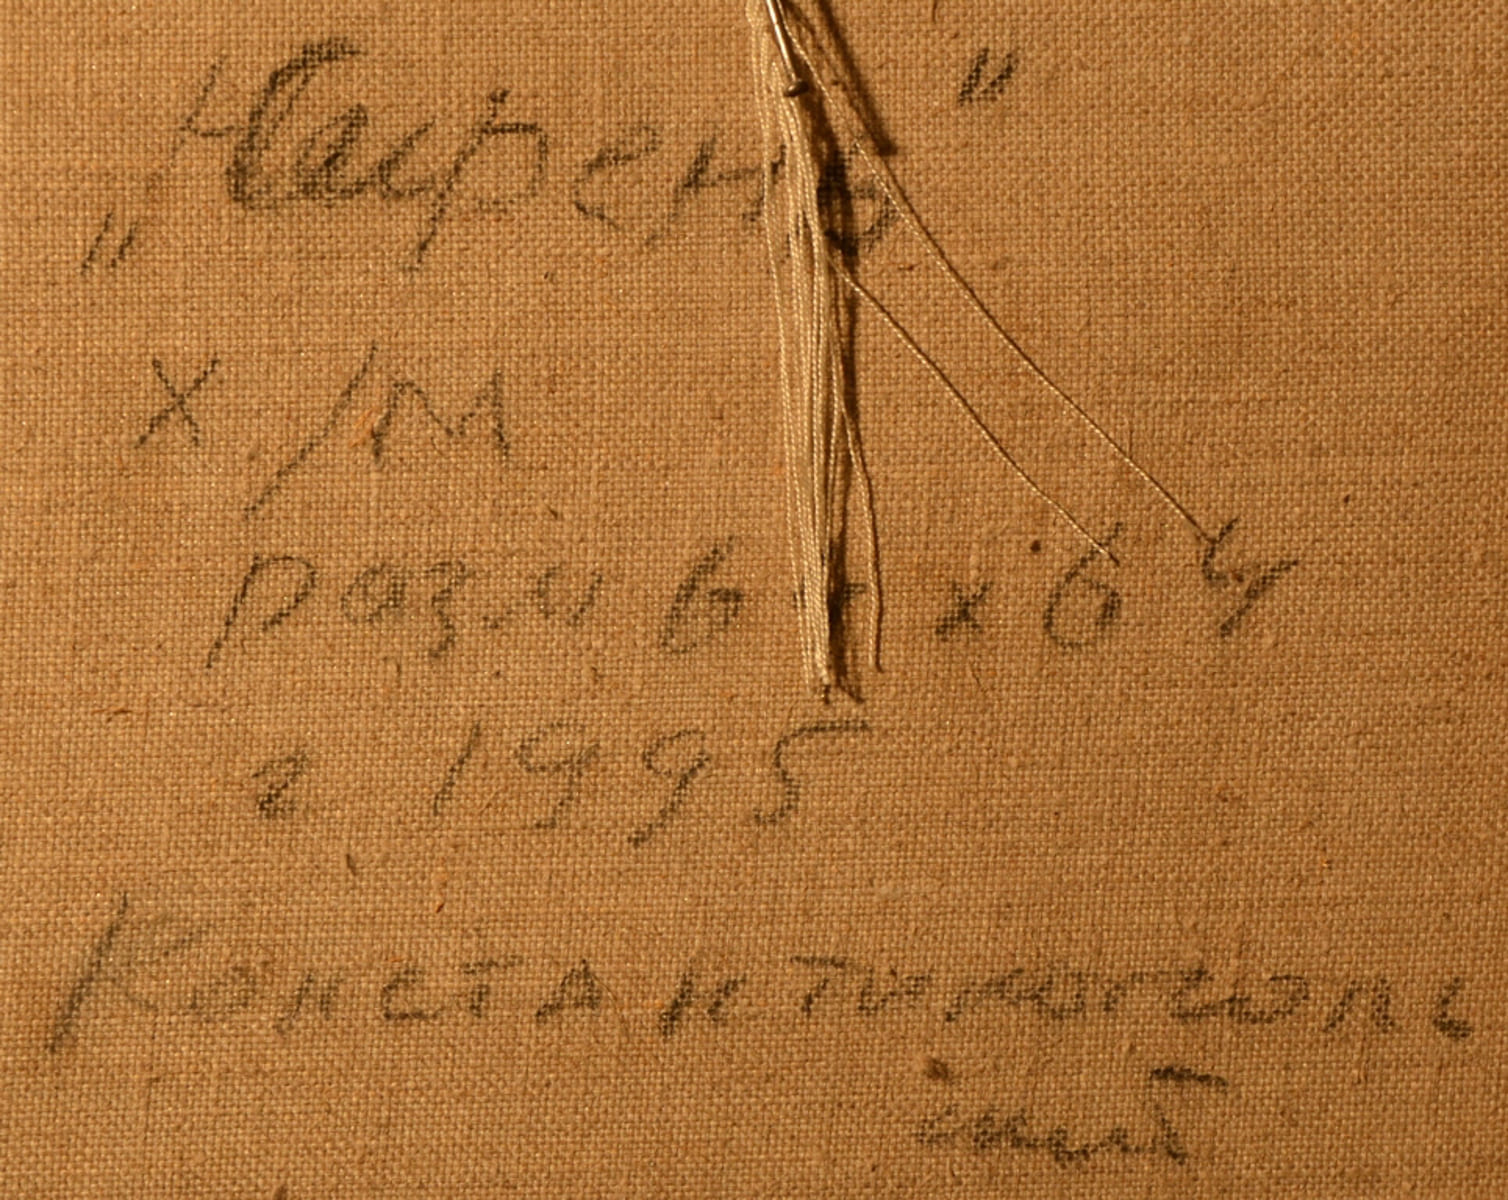 „Сирень"
х/м
разм 6 х 64
г 1995
Константинополь
ский